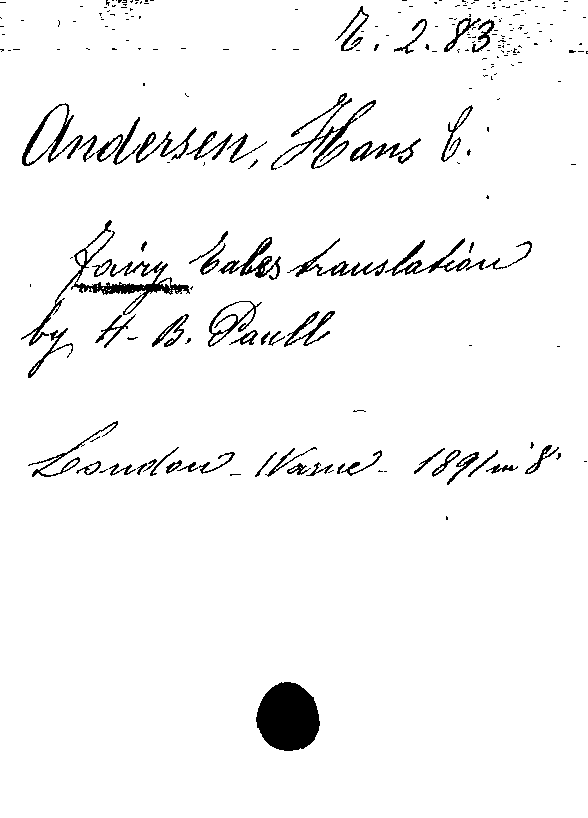 T. 2. 83
Andersen, Hans C.
Fairy Tales translation
by H. B. Paull
London - Warne - 1891 in 8°